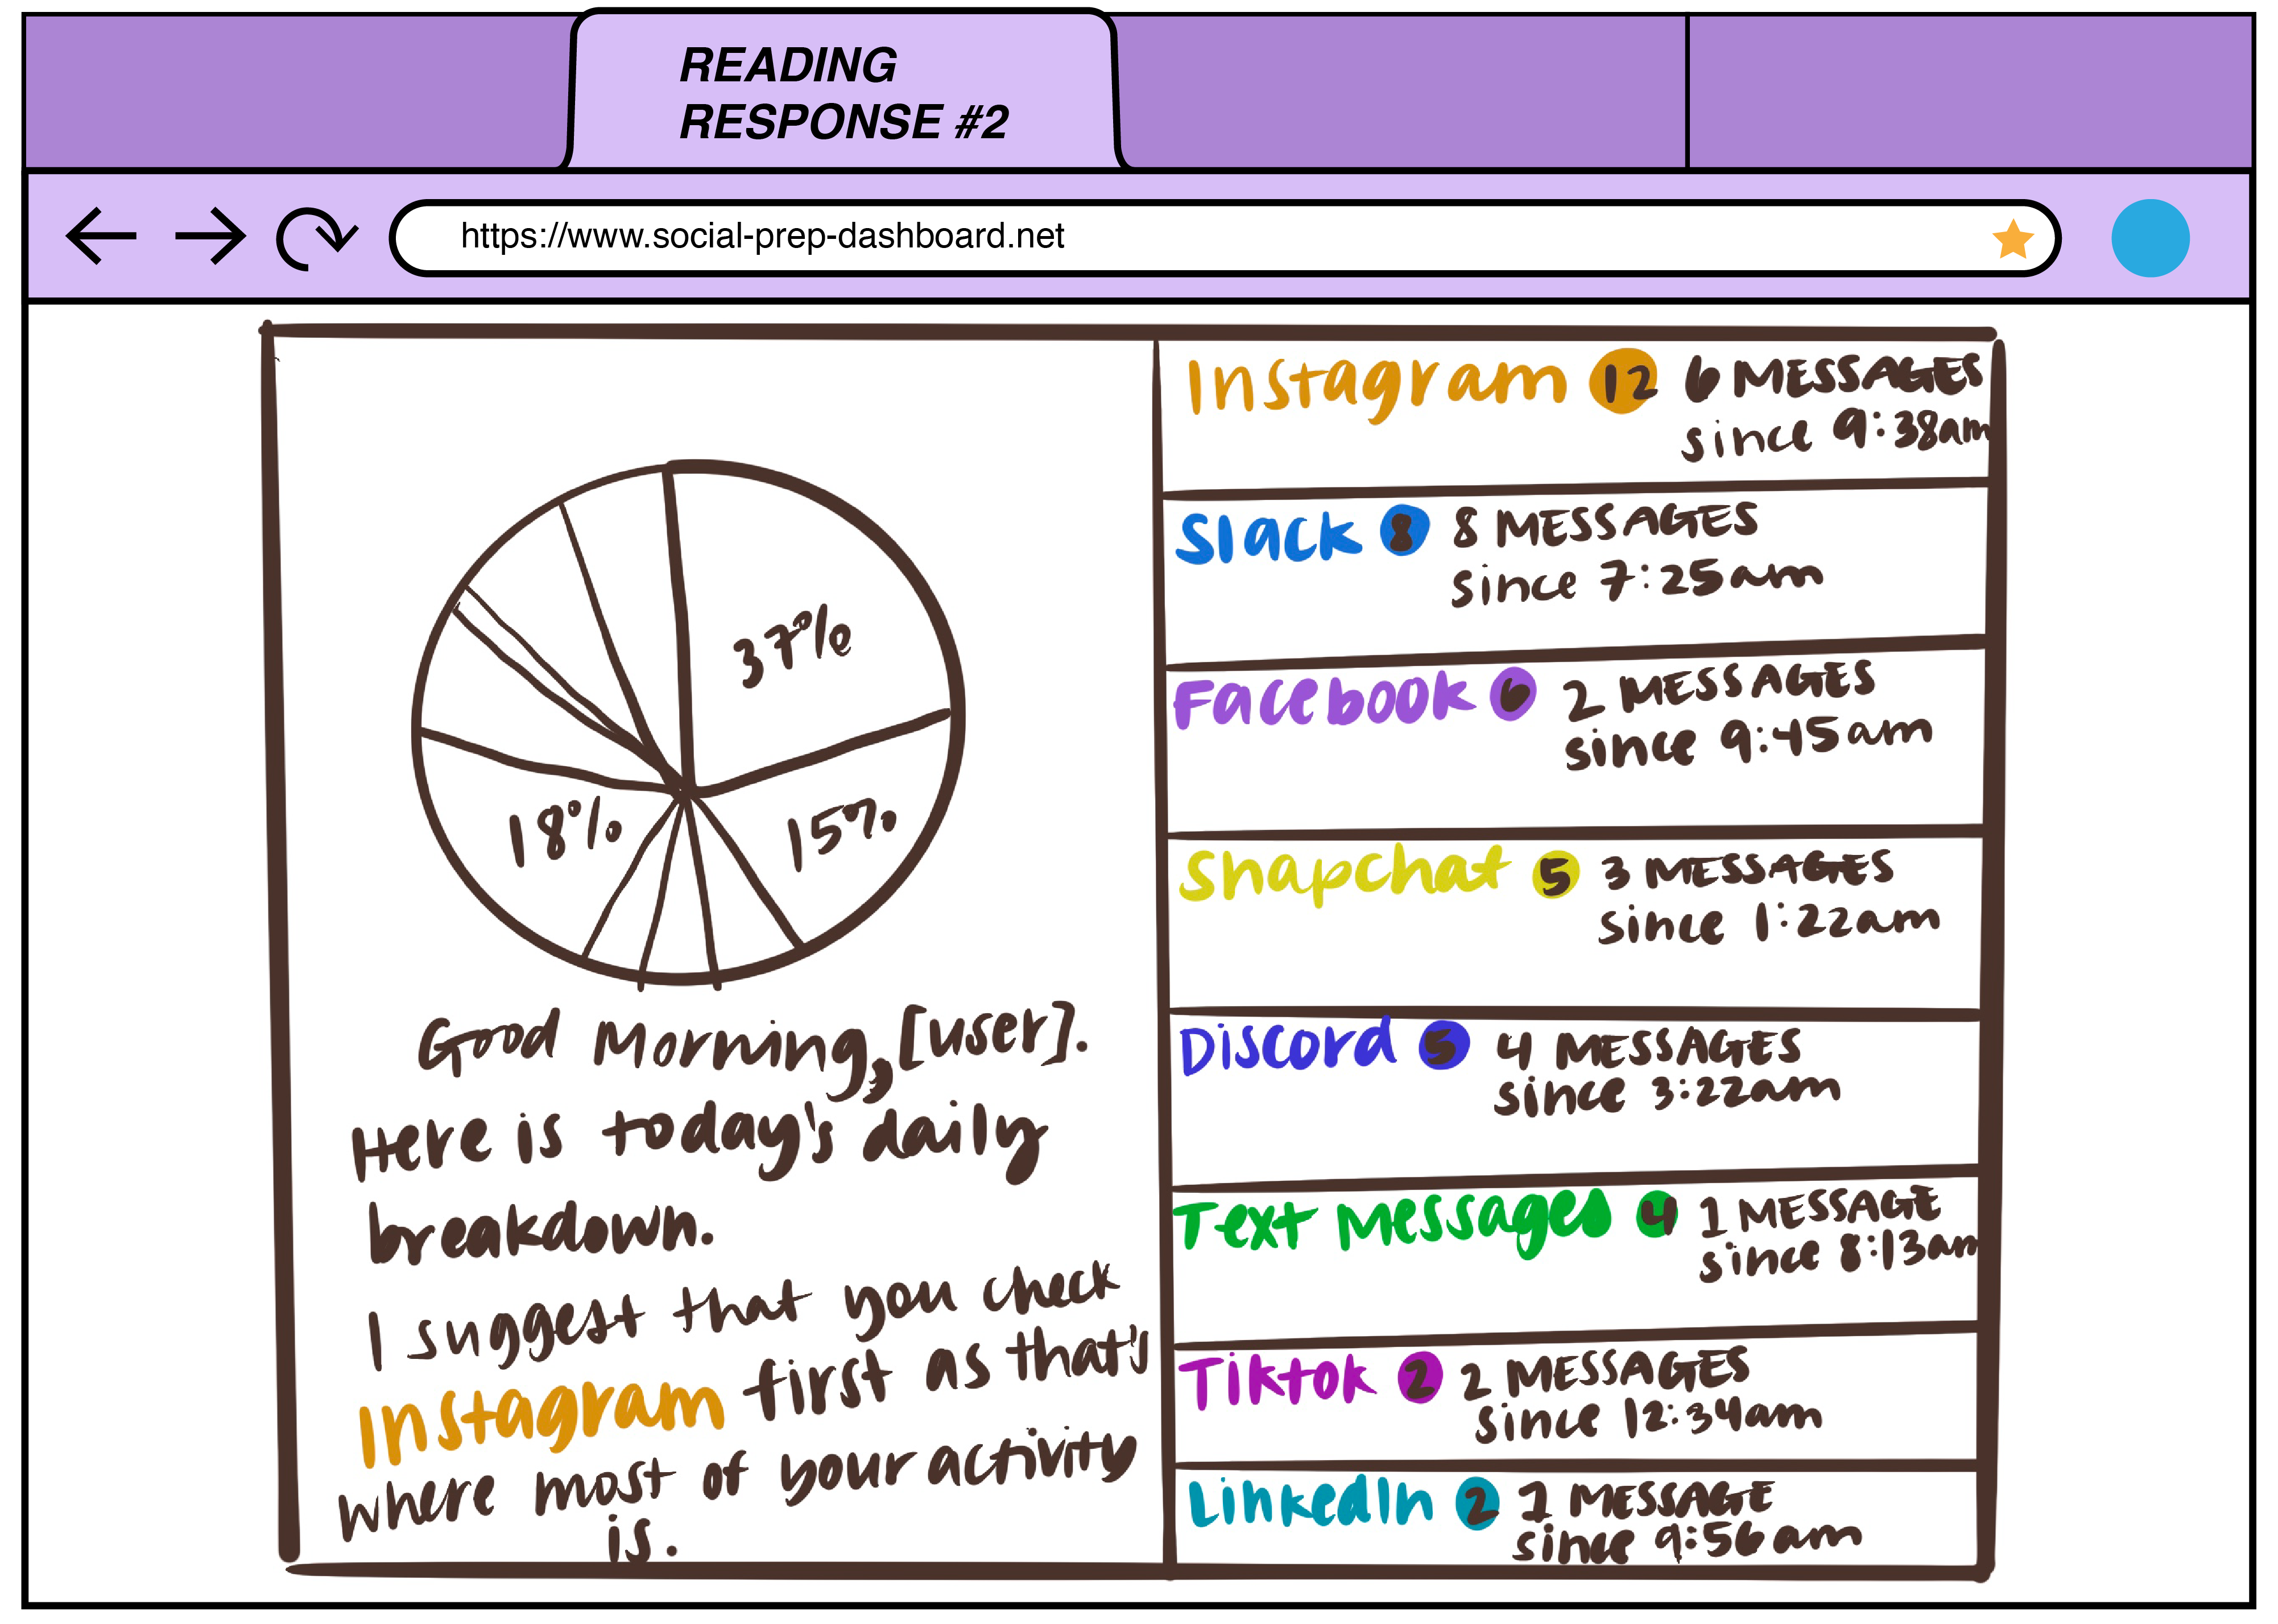 READING
RESPONSE #2
https://www.social-prep-dashboard.net
37%
15%
18%
Good Morning, [user].
Here is today's daily
breakdown.
I suggest that you check
Instagram first as that's
where most of your activity
is.
Instagram 12 6 MESSAGES
since 9:38am
Slack 8 8 MESSAGES
since 7:25am
Facebook 6 2 MESSAGES
since 9:45am
Snapchat 5 3 MESSAGES
since 1:22am
Discord 5 4 MESSAGES
since 3:22am
Text Messages 4 1 MESSAGE
since 8:13am
Tiktok 2 2 MESSAGES
since 12:34am
LinkedIn 2 1 MESSAGE
since 9:56am